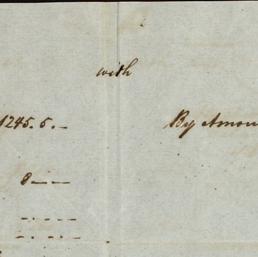 with
1245.5.–
By Amou
8 – –
–.– –
–.– –